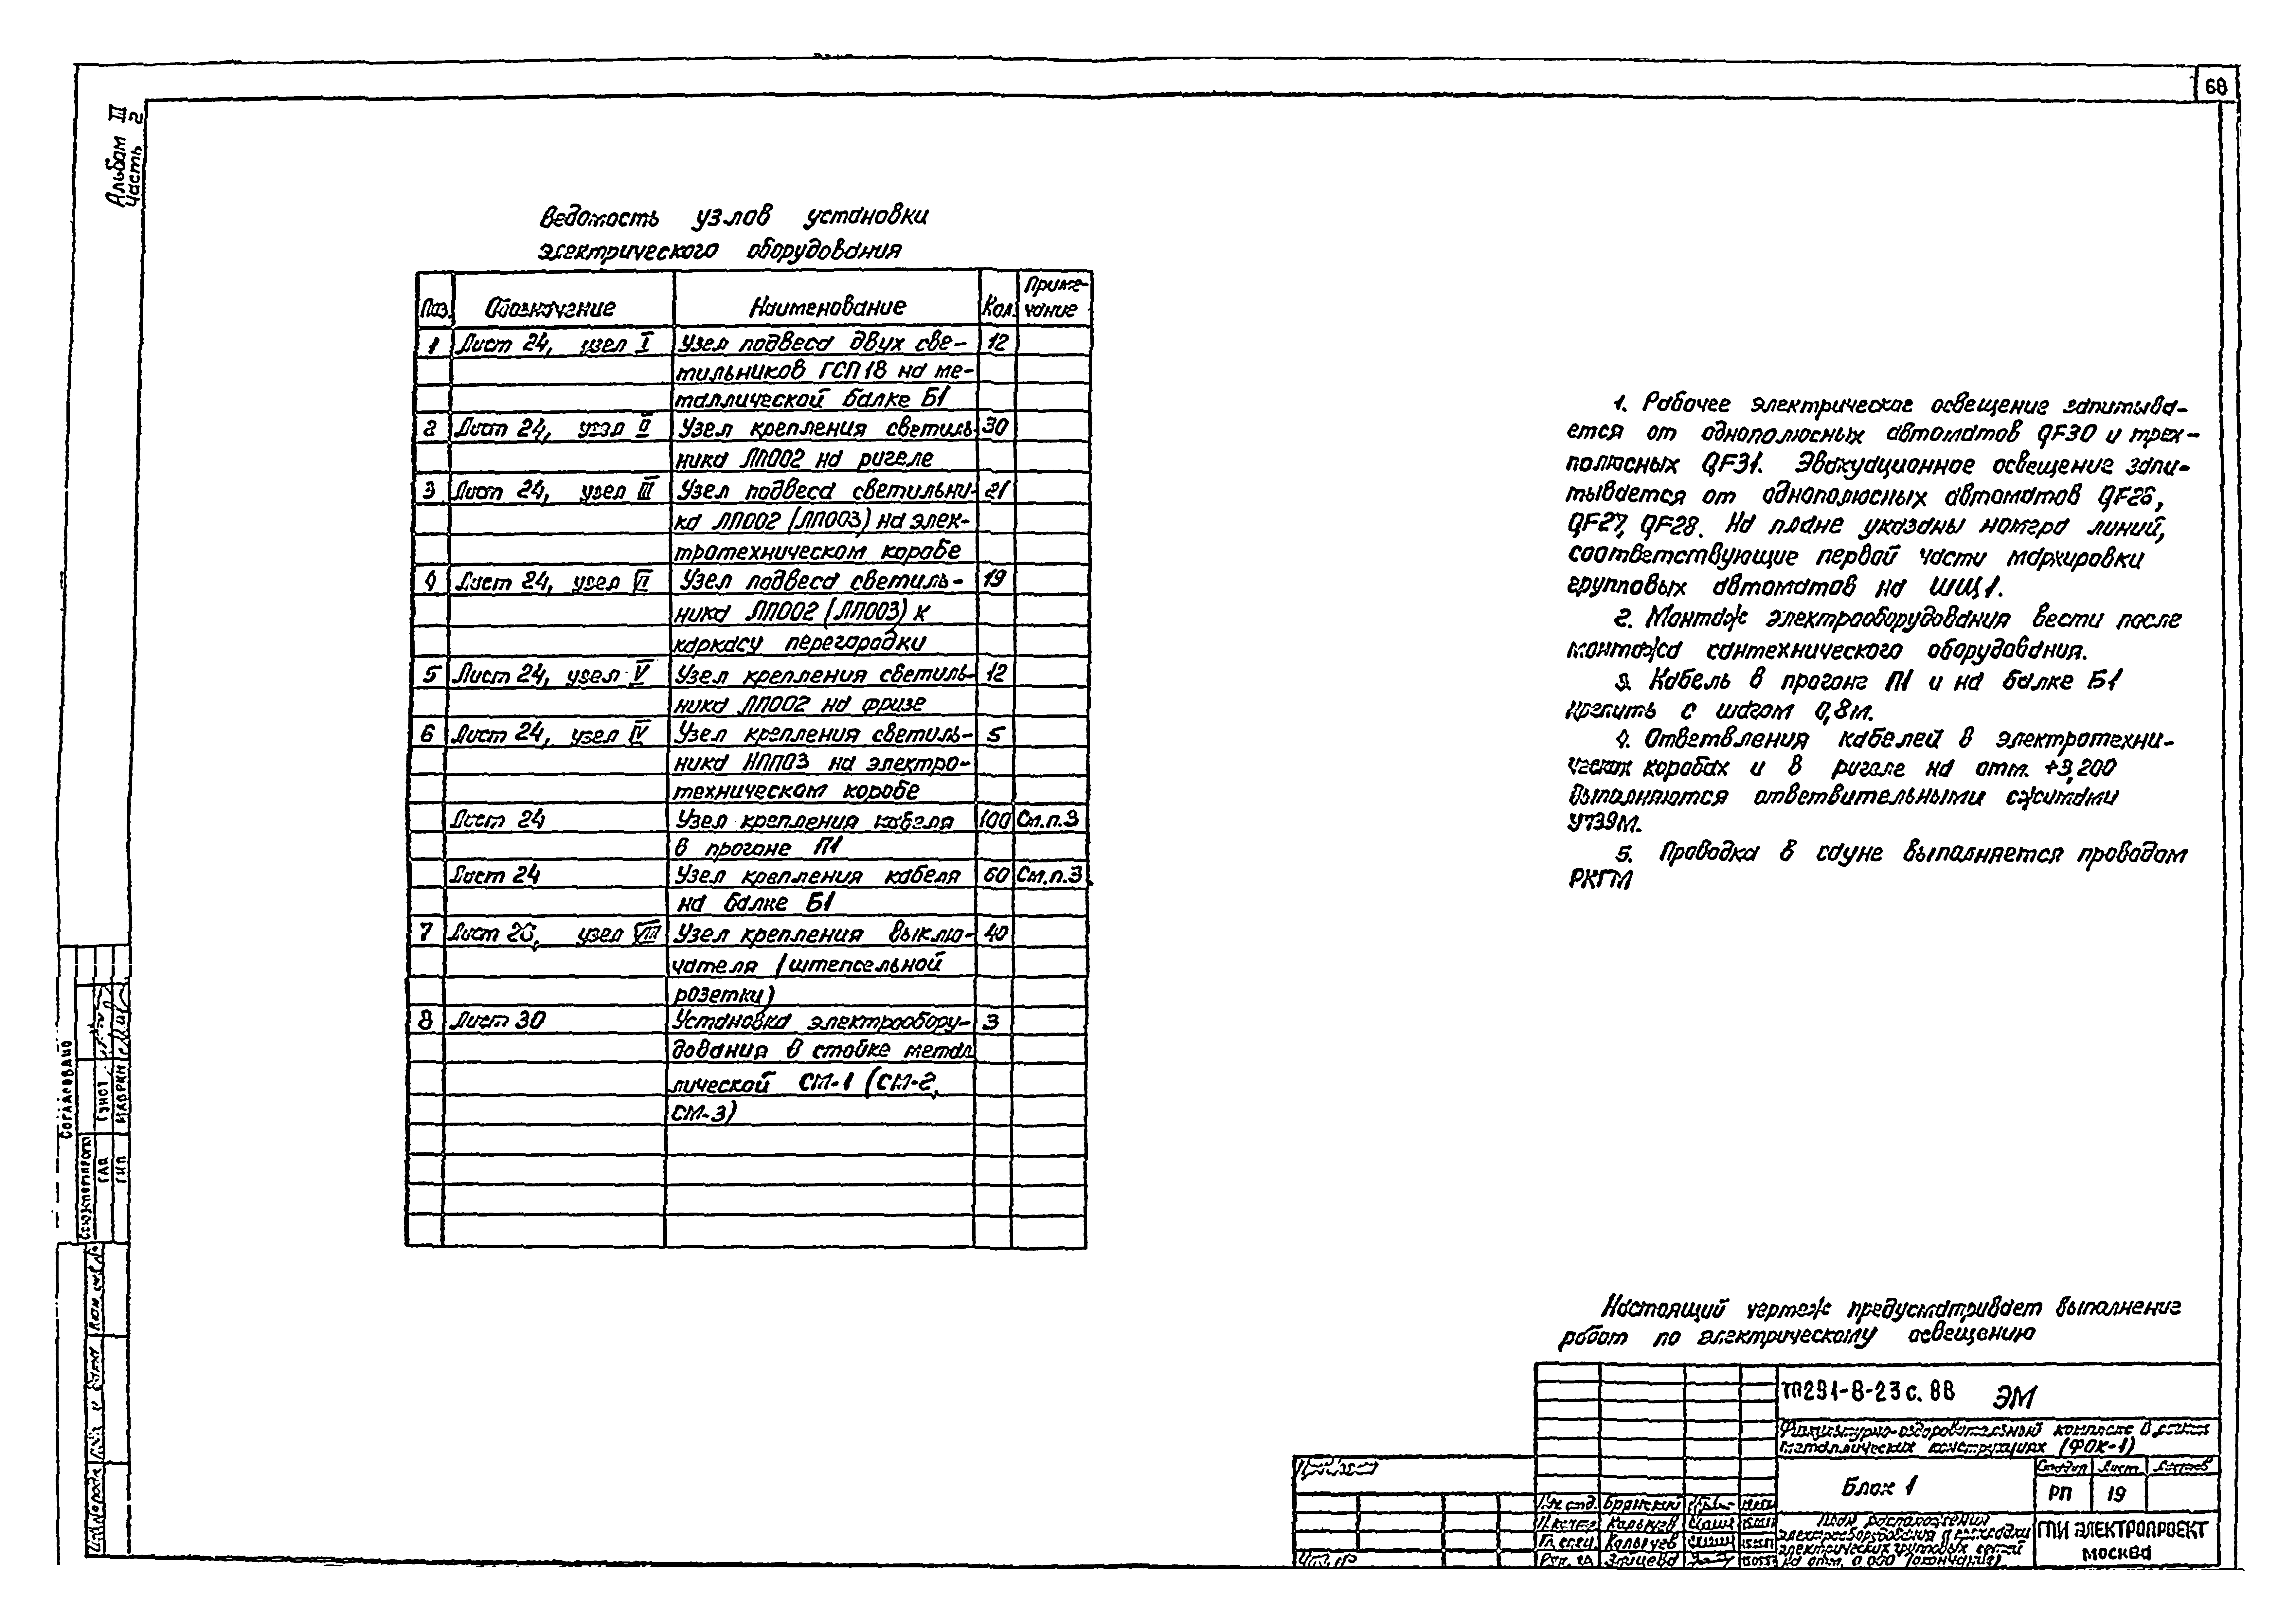 68
Альбом III
Часть 2
Ведомость узлов установки
электрического оборудования
Поз. Обозначение Наименование Кол. Приме-
чание
1 Лист 24, узел I Узел подвеса двух све- 12
тильников ГСП18 на ме-
таллической балке Б1
2 Лист 24, узел II Узел крепления светиль- 30
ника ЛПО02 на ригеле
3 Лист 24, узел III Узел подвеса светильни- 21
ка ЛПО02 (ЛПО03) на элек-
тротехническом коробе
4 Лист 24, узел VI Узел подвеса светиль- 19
ника ЛПО02 (ЛПО03) к
каркасу перегородки
5 Лист 24, узел V Узел крепления светиль- 12
ника ЛПО02 на фризе
6 Лист 24, узел IV Узел крепления светиль- 5
ника НПП03 на электро-
техническом коробе
Лист 24 Узел крепления кабеля 100 См.п.3
в прогоне П1
Лист 24 Узел крепления кабеля 60 См.п.3
на балке Б1
7 Лист 26, узел VIII Узел крепления выклю- 40
чателя (штепсельной
розетки)
8 Лист 30 Установка электрообору- 3
дования в стойке метал
лической СМ-1 (СМ-2,
СМ-3)
1. Рабочее электрическое освещение запитыва-
ется от однополюсных автоматов QF30 и трех-
полюсных QF31. Эвакуационное освещение запи-
тывается от однополюсных автоматов QF26,
QF27, QF28. На плане указаны номера линий,
соответствующие первой части маркировки
групповых автоматов на ШЩ1.
2. Монтаж электрооборудования вести после
монтажа сантехнического оборудования.
3. Кабель в прогоне П1 и на балке Б1
крепить с шагом 0,8м.
4. Ответвления кабелей в электротехни-
ческих коробах и в ригеле на отм. +3,200
выполняются ответвительными сжимами
У739М.
5. Проводка в сауне выполняется проводом
РКГМ
Настоящий чертеж предусматривает выполнение
работ по электрическому освещению
ТП291-8-23с.88 ЭМ
Физкультурно-оздоровительный комплекс в легких
металлических конструкциях (ФОК-1)
Блок 1
Стадия Лист Листов
РП 19
План расположения
электрооборудования и прокладки
электрических групповых сетей
на отм. 0.000 (окончание)
ГПИ ЭЛЕКТРОПРОЕКТ
МОСКВА
Привязан
Инв. №
Рук. отд. Брянский
Н.контр. Калычев
Гл. спец. Калычев
Рук. гр. Зайцева
СОГЛАСОВАНО
ГАП
ГИП
Инв.№ подл. Подп. и дата Взам. инв. №